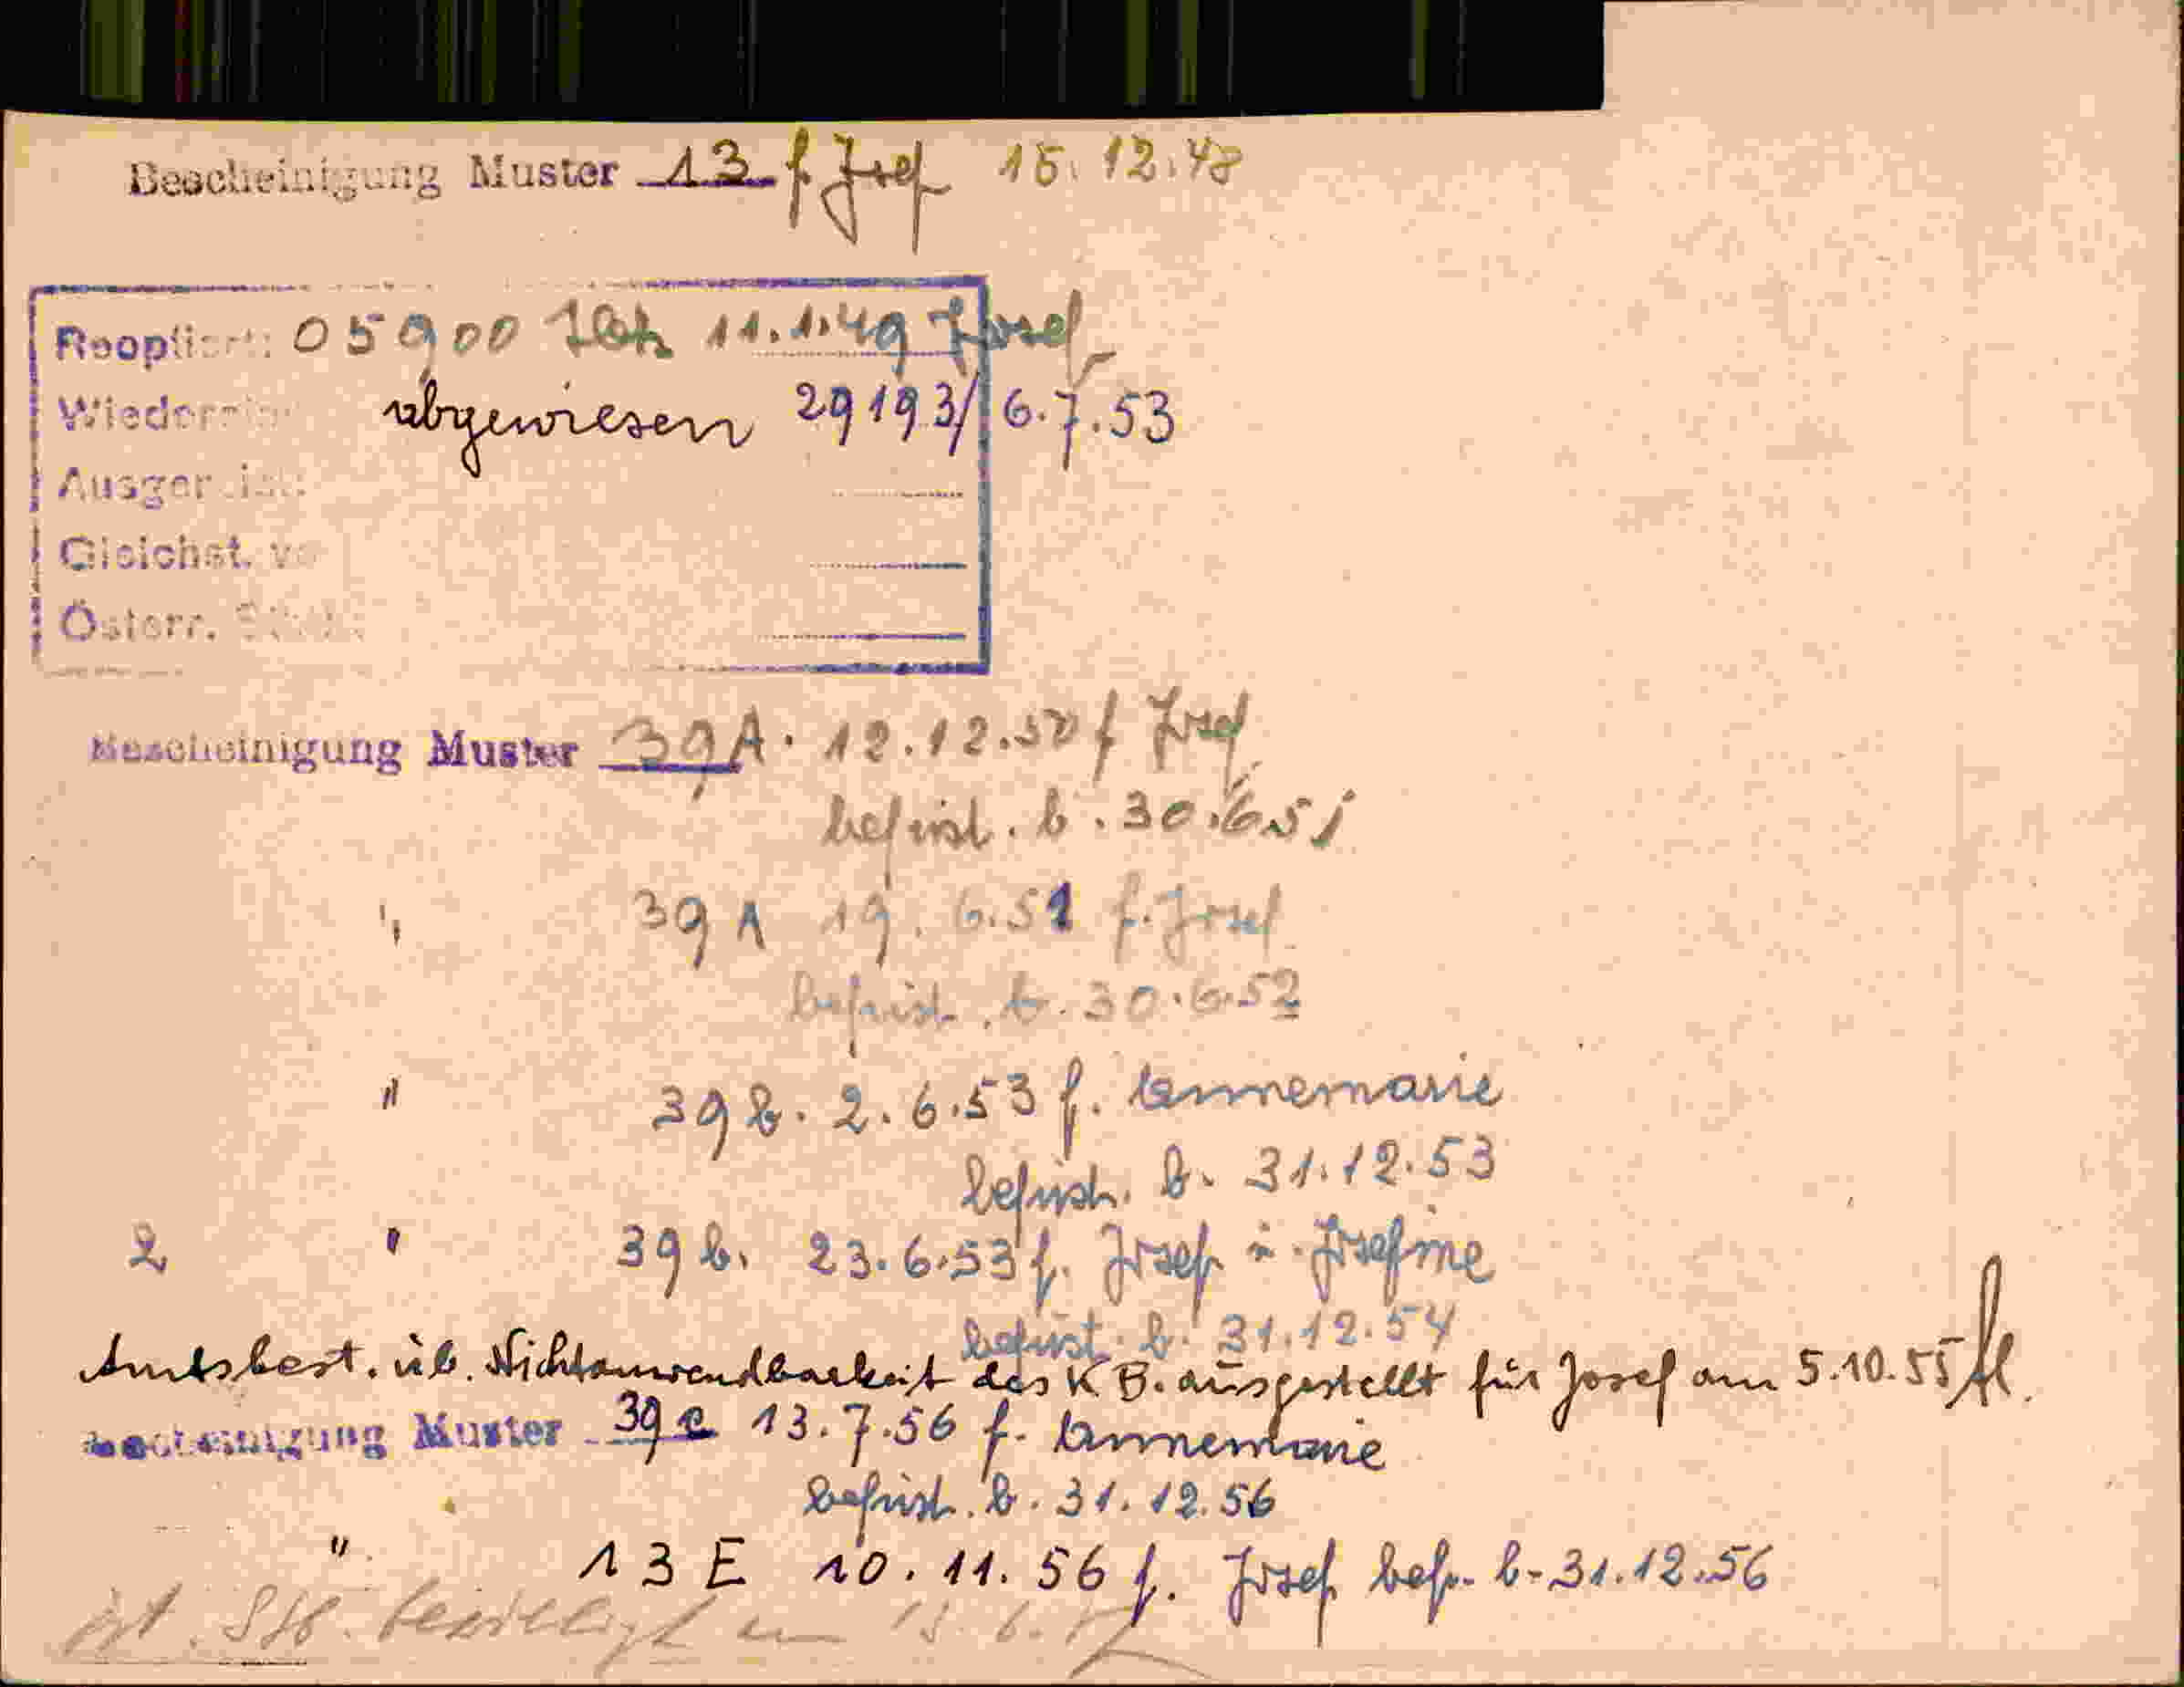 Bescheinigung Muster 13 f Josef 15.12.48
Reoptiert: 05900 11.1.49 Josef
abgewiesen 29193/ 6.7.53
Gleichst.
Österr.
Bescheinigung Muster 39A. 12.12.50 f Josef
befrist. b. 30.6.51
" 39 A 19. 6.51 f. Josef
befrist. b. 30.6.52
" 39 b. 2.6.53 f. Annemarie
befrist. b. 31.12.53
2 " 39 b. 23.6.53 f. Josef u. Josefine
befrist. b. 31.12.54
Amtsbest. üb. Nichtanwendbarkeit des K B. ausgestellt für Josef am 5.10.55
Bescheinigung Muster 39 c 13.7.56 f. Annemarie
befrist. b. 31.12.56
" 13 E 10.11.56 f. Josef befr. b. 31.12.56